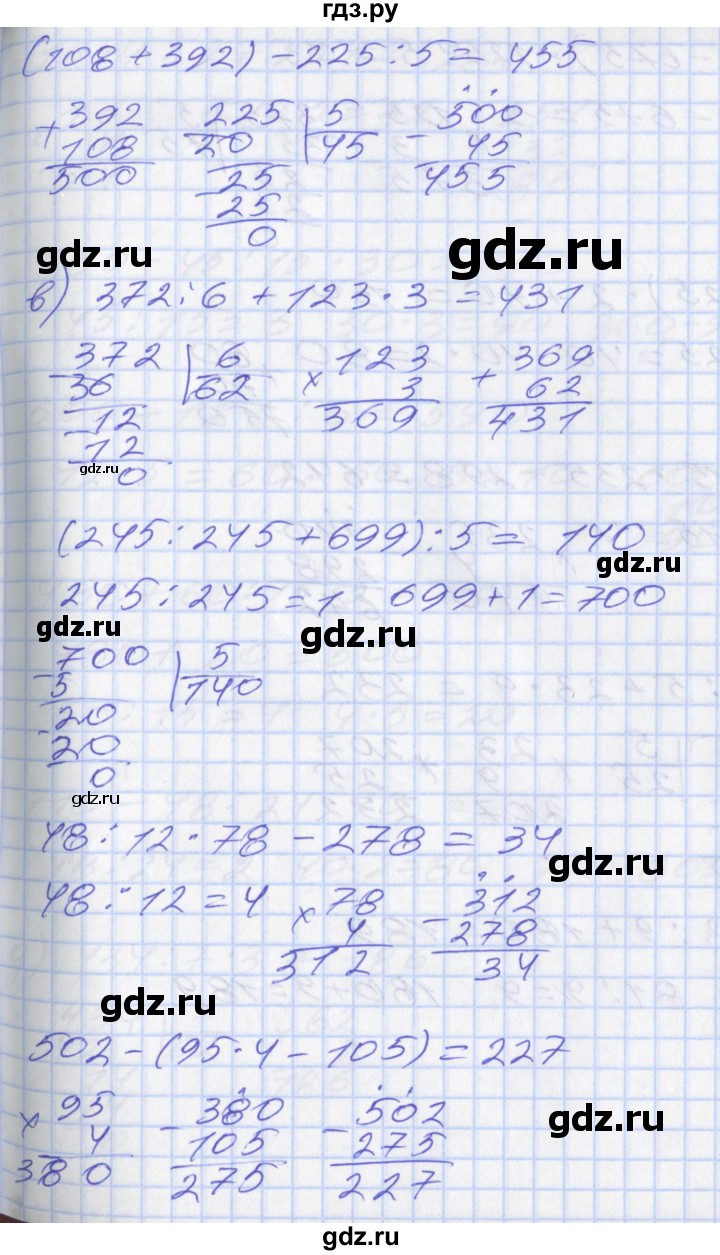 гдз.ру
(108 + 392) - 225 : 5 = 455
392 225 | 5 500
+ 108 - 20 | 45 - 45
500 - 25 455
25
0
gdz.ru gdz.ru
в) 372 : 6 + 123 · 3 = 431
- 372 | 6 × 123 + 369
36 | 62 3 62
- 12 369 431
12
gdz.ru 0
(245 : 245 + 699) : 5 = 140
gdz.ru
245 : 245 = 1 699 + 1 = 700
gdz.ru gdz.ru
- 700 | 5
5 | 140
- 20
20
0
gdz.ru
48 : 12 · 78 - 278 = 34
gdz.ru
48 : 12 = 4 × 78 - 312
4 278
312 34
gdz.ru
502 - (95 · 4 - 105) = 227
× 95 - 380 - 502
4 105 275
380 275 227
gdz.ru
gdz.ru